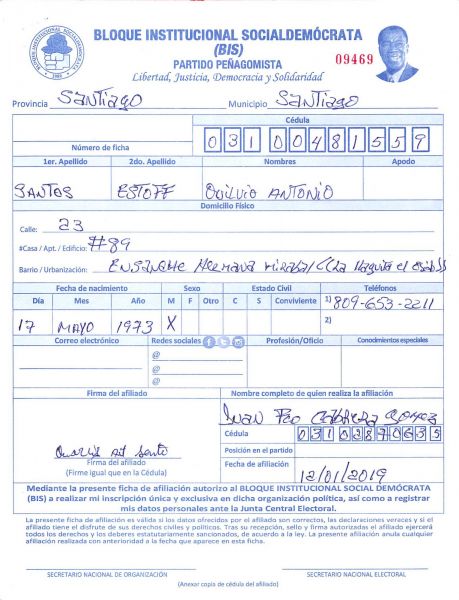 BLOQUE INSTITUCIONAL SOCIALDEMÓCRATA
(BIS)
PARTIDO PEÑAGOMISTA
09469
Libertad, Justicia, Democracia y Solidaridad
Provincia Santiago Municipio Santiago
Cédula
Número de ficha 03100481559
1er. Apellido 2do. Apellido Nombres Apodo
SANTOS ESTOFF QUILVIO ANTONIO
Domicilio Físico
Calle: 23
#Casa / Apt. / Edificio: #89
Barrio / Urbanización: ENSANCHE Hermana mirabal (La
Fecha de nacimiento Sexo Estado Civil Teléfonos
Día Mes Año M F Otro C S Conviviente 1) 809-653-2211
17 MAYO 1973 X 2)
Correo electrónico Redes sociales Profesión/Oficio Conodimientos especiales
@
@
@
Firma del afiliado Nombre completo de quien realiza la afiliación
Juan Fco Cabrera Gomez
Cédula 03102870635
Posición en el partido
Firma del afiliado
(Firme igual que en la Cédula)
Fecha de afiliación 12/01/2019
Mediante la presente ficha de afiliación autorizo al BLOQUE INSTITUCIONAL SOCIAL DEMÓCRATA
(BIS) a realizar mi inscripción única y exclusiva en dicha organización política, así como a registrar
mis datos personales ante la Junta Central Electoral.
La presente ficha de afiliación es válida si los datos ofrecidos por el afiliado son correctos, las declaraciones veraces y si el
afiliado tiene el disfrute de sus derechos civiles y políticos. Tras su recepción, sello y firma autorizados el afiliado ejercerá
todos los derechos y los deberes estatutariamente sancionados, de acuerdo a la ley. La presente afiliación anula cualquier
afiliación realizada con anterioridad a la fecha que aparece en esta ficha.
SECRETARIO NACIONAL DE ORGANIZACIÓN SECRETARIO NACIONAL ELECTORAL
(Anexar copia de cédula del afiliado)